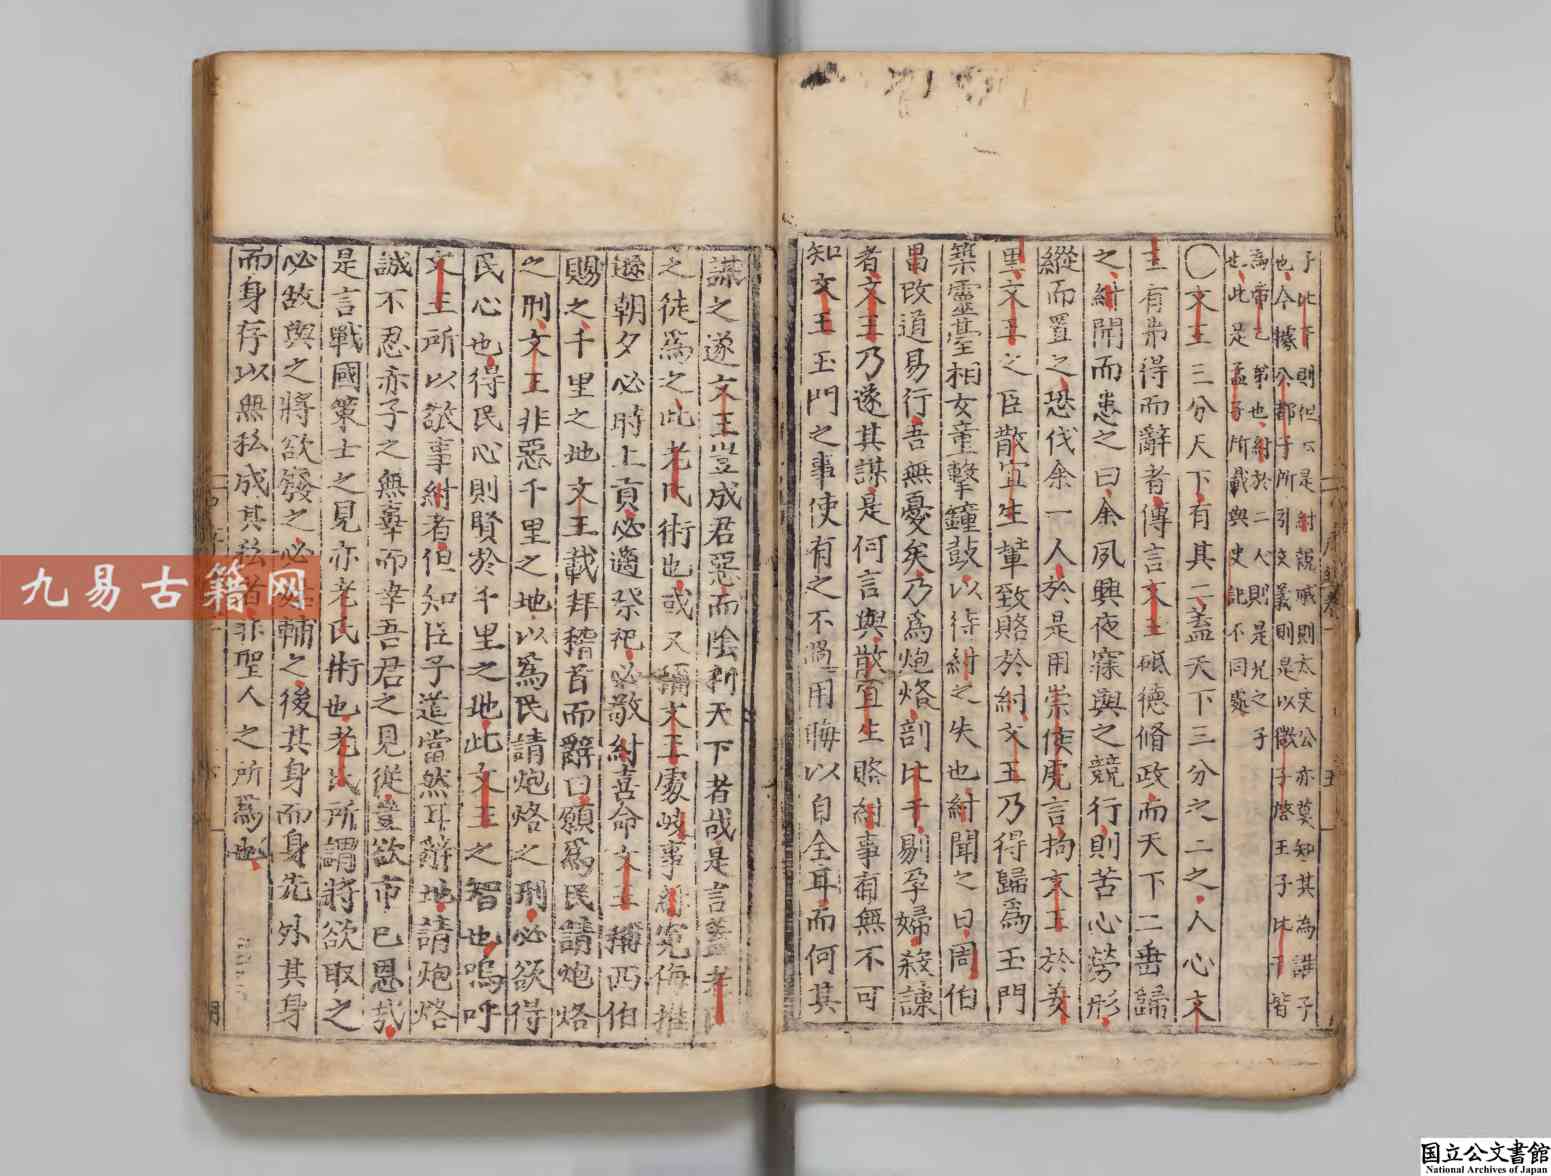 子比干則但云是紂諸戚則太史公亦莫知其為誰子
也今據公都子所引文義則是以微子啓王子比干皆
為帝乙弟也紂於二人則是兄之子
也此是孟子所載與史記不同處
〇文王三分天下有其二蓋天下三分之二之人心文
王有弗得而辭者傳言文王砥德脩政而天下二垂歸
之紂聞而患之曰余夙興夜寐與之競行則苦心勞形
縱而置之恐伐余一人於是用崇侯虎言拘文王於羑
里文王之臣散宜生輩致賂於紂文王乃得歸爲玉門
築靈臺相女童擊鐘鼓以待紂之失也紂聞之曰周伯
昌改道易行吾無憂矣乃爲炮烙剖比干剔孕婦殺諫
者文王乃遂其謀是何言與散宜生賂紂事有無不可
知文王玉門之事使有之不過用晦以自全耳而何其
謀之遂文王豈成君惡而陰利天下者哉是言蓋老
之徒爲之此老氏術也或又稱文王處岐事紂寃侮雅
遜朝夕必時上貢必適祭祀必敬紂喜命文王稱西伯
賜之千里之地文王載拜稽首而辭曰願爲民請炮烙
之刑文王非惡千里之地以爲民請炮烙之刑必欲得
民心也得民心則賢於千里之地此文王之智也嗚呼
文王所以敬事紂者但知臣子道當然耳辭地請炮烙
誠不忍赤子之無辜而幸吾君之見從豈欲市已恩哉
是言戰國策士之見亦老氏術也老氏所謂將欲取之
必故與之將欲發之必姑輔之後其身而身先外其身
而身存以無私成其私者非聖人之所爲也
九易古籍网
国立公文書館
National Archives of Japan